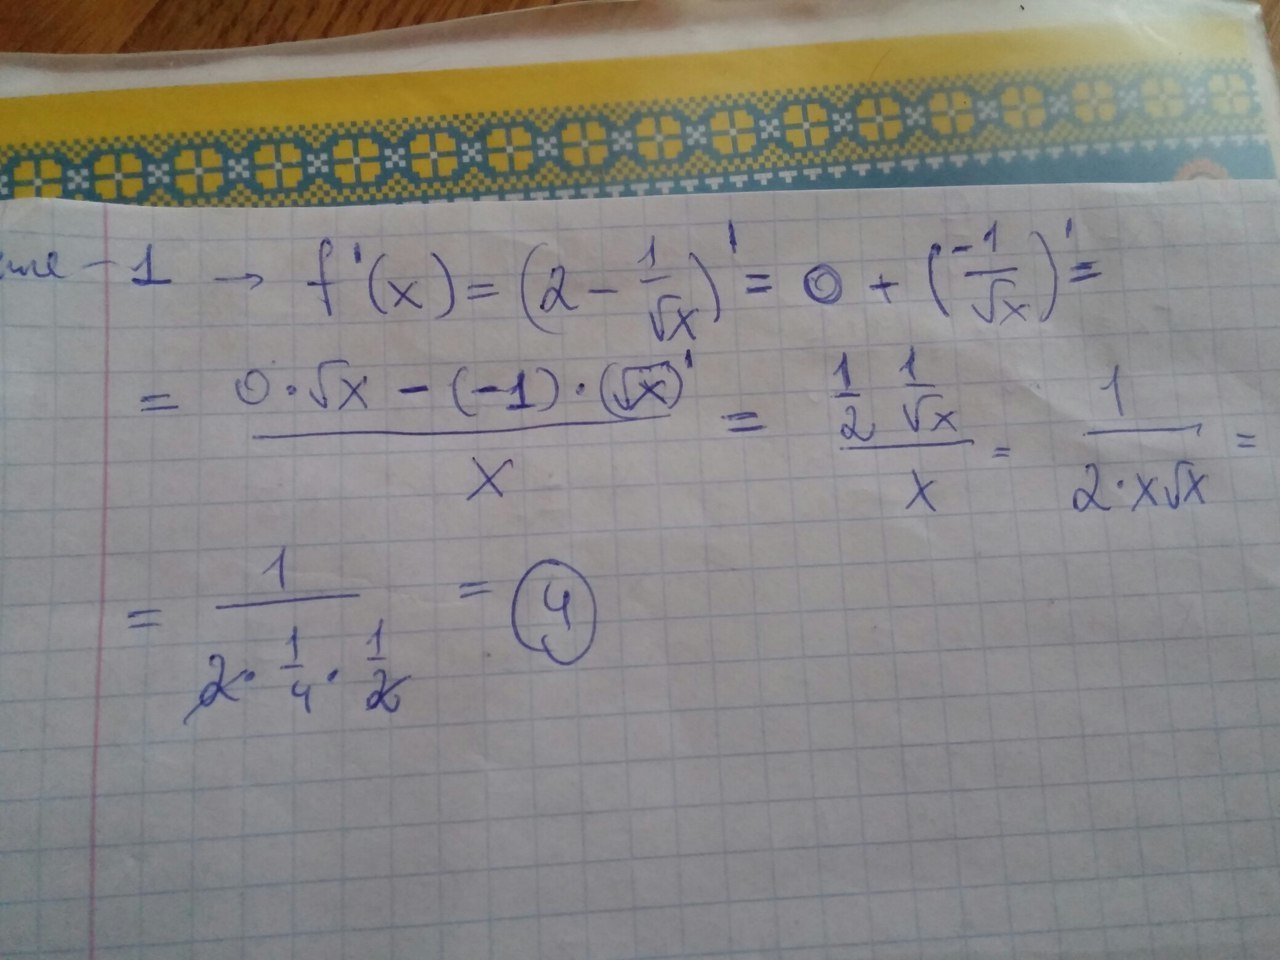 - 1 → f'(x) = (2 - 1/√x)' = 0 + (-1/√x)' =
= (0·√x - (-1)·(√x)')/x = (1/2 1/√x)/x = 1/(2·x√x) =
= 1/(2·1/4·1/2) = 4